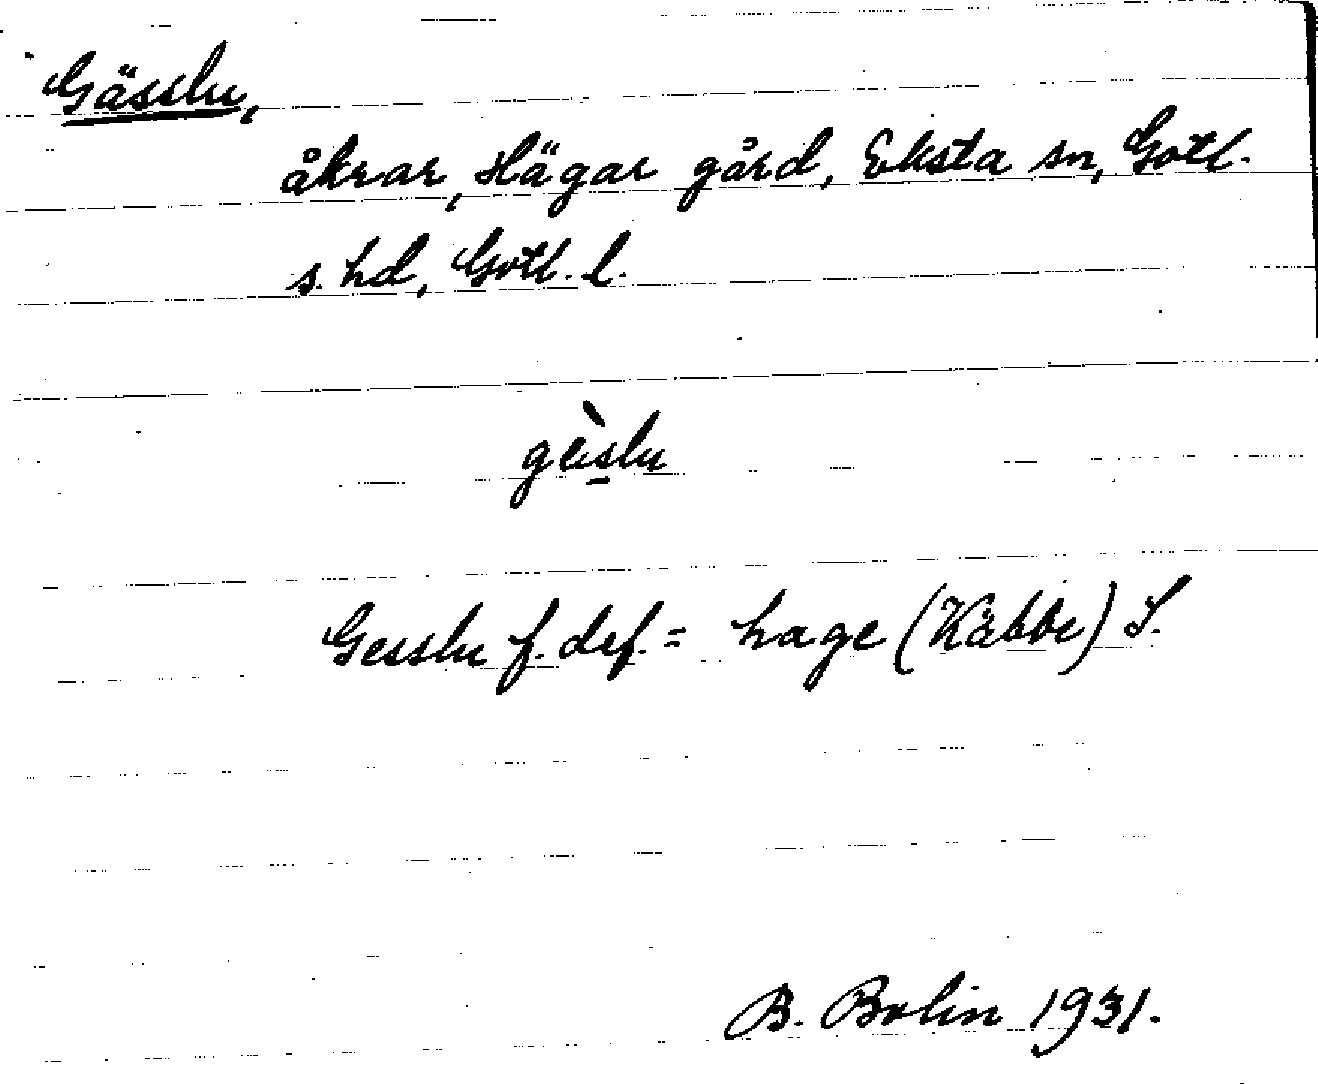 Gässlu,
åkrar, Hägar gård, Eksta sn, Gotl.
s. hd, Gotl. l.
gèslu
Gesslu f. def. = hage (Käbbe) S.
B. Bolin 1931.